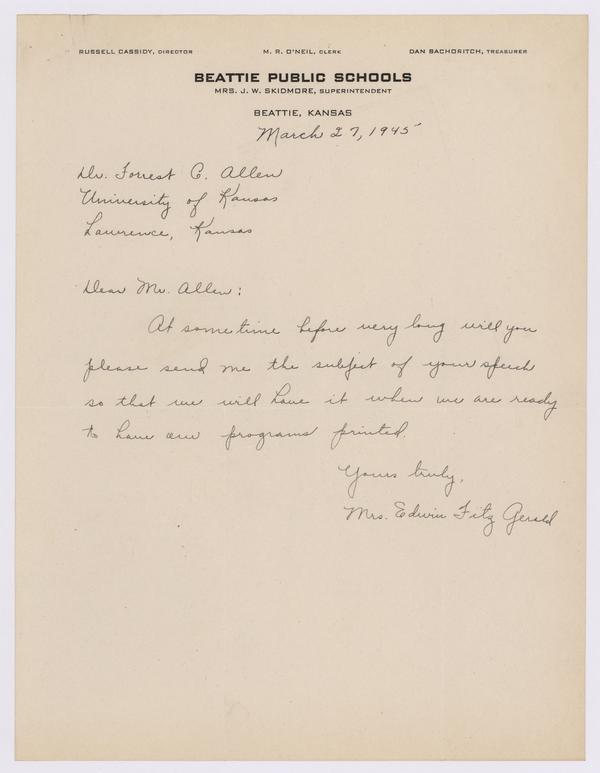 RUSSELL CASSIDY, DIRECTOR M. R. O'NEIL, CLERK DAN BACHORITCH, TREASURER
BEATTIE PUBLIC SCHOOLS
MRS. J. W. SKIDMORE, SUPERINTENDENT
BEATTIE, KANSAS
March 27, 1945
Dr. Forrest C. Allen
University of Kansas
Lawrence, Kansas
Dear Mr. Allen:
At sometime before very long will you
please send me the subject of your speech
so that we will have it when we are ready
to have our programs printed.
Yours truly,
Mrs. Edwin Fitz Gerald